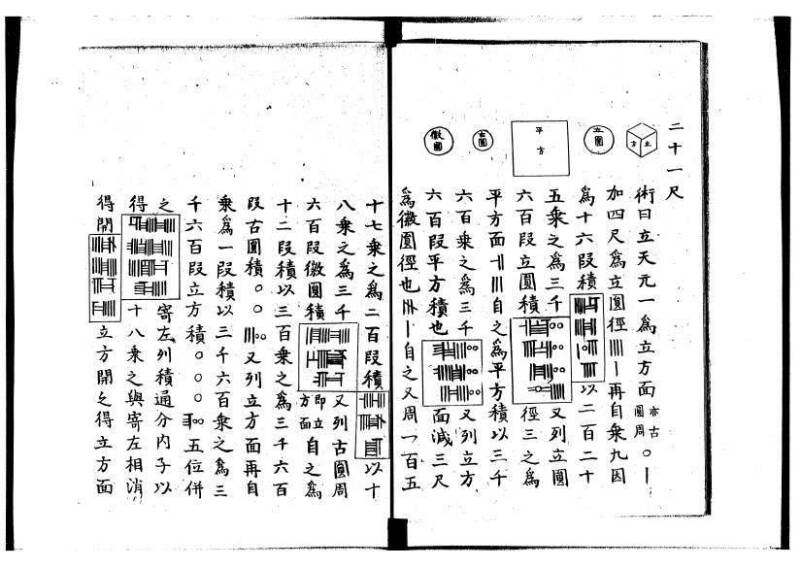 二十一尺
立方
立圓
平方
古圓
徽圓
術曰立天元一爲立方面亦古圓周〇|
加四尺爲立圓徑|||||再自乘九因
爲十六段積以二百二十
五乘之爲三千又列立圓
六百段立圓積徑三之爲
平方面自之爲平方積以三千
六百乘之爲三千又列立方
六百段平方積也面減三尺
爲徽圓徑也自之又周一百五
十七乘之爲二百段積以十
八乘之爲三千又列古圓周
六百段徽圓積即立方面自之爲
十二段積以三百乘之爲三千六百
段古圓積〇〇又列立方面再自
乘爲一段積以三千六百乘之爲三
千六百段立方積〇〇〇五位併
之寄左列積通分內子以
得十八乘之與寄左相消
得開立方開之得立方面